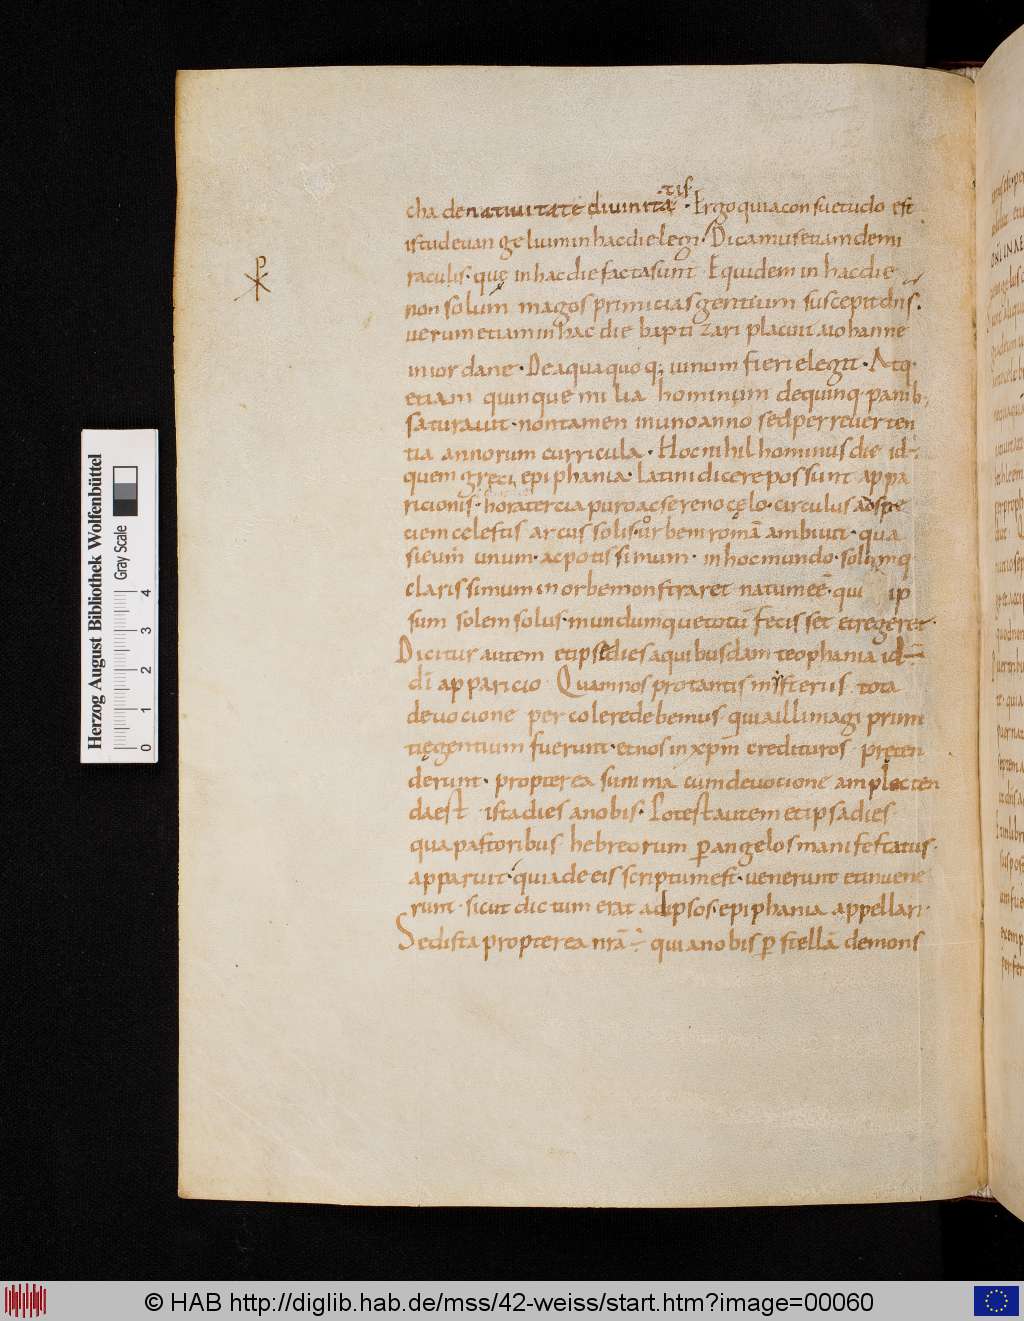 cha denativitate divinita tis. Ergo quia consuetudo est
istud evangelium in hac die legi. Dicamus etiam de mi
raculis. quę in hac die facta sunt. Equidem in hac die
non solum magos primicias gentium suscepit dns.
verum etiam in hac die baptizari placuit a iohanne
in iordane. De aqua quoq; vinum fieri elegit. Atq.
etiam quinque milia hominum de quinq. panib;
saturavit. non tamen in uno anno sed per reverten
tia annorum curricula. Hoc nihilhominus die id
quem greci, epiphania. latini dicere possunt appa
ricionis. hora tercia puro ac sereno cęlo. circulus ad spe
ciem celestis arcus solis. urbem romā ambiuit. qua
si cum unum. ac potissimum. in hoc mundo. solumq.
clarissimum in orbe monstraret natum eē. qui ip
sum solem solus. mundumque totū fecisset et regeret.
Dicitur autem et ipse dies a quibusdam teophania id ē
di apparicio. Quam nos pro tantis misteriis. tota
devocione percolere debemus. quia illi magi primi
tię gentium fuerunt. et nos in xpm credituros. pręten
derunt. propterea summa cum devocione amplecten
da est ista dies a nobis. Potest autem et ipsa dies
qua pastoribus hebreorum p angelos manifestatus.
apparuit. quia de eis scriptum est. venerunt et invene
runt. sicut dictum erat ad ipsos. epiphania appellari.
Sed ista propterea nrā ÷ qui a nobis p stellā demons
© HAB http://diglib.hab.de/mss/42-weiss/start.htm?image=00060
Herzog August Bibliothek Wolfenbüttel
Gray Scale
0 1 2 3 4